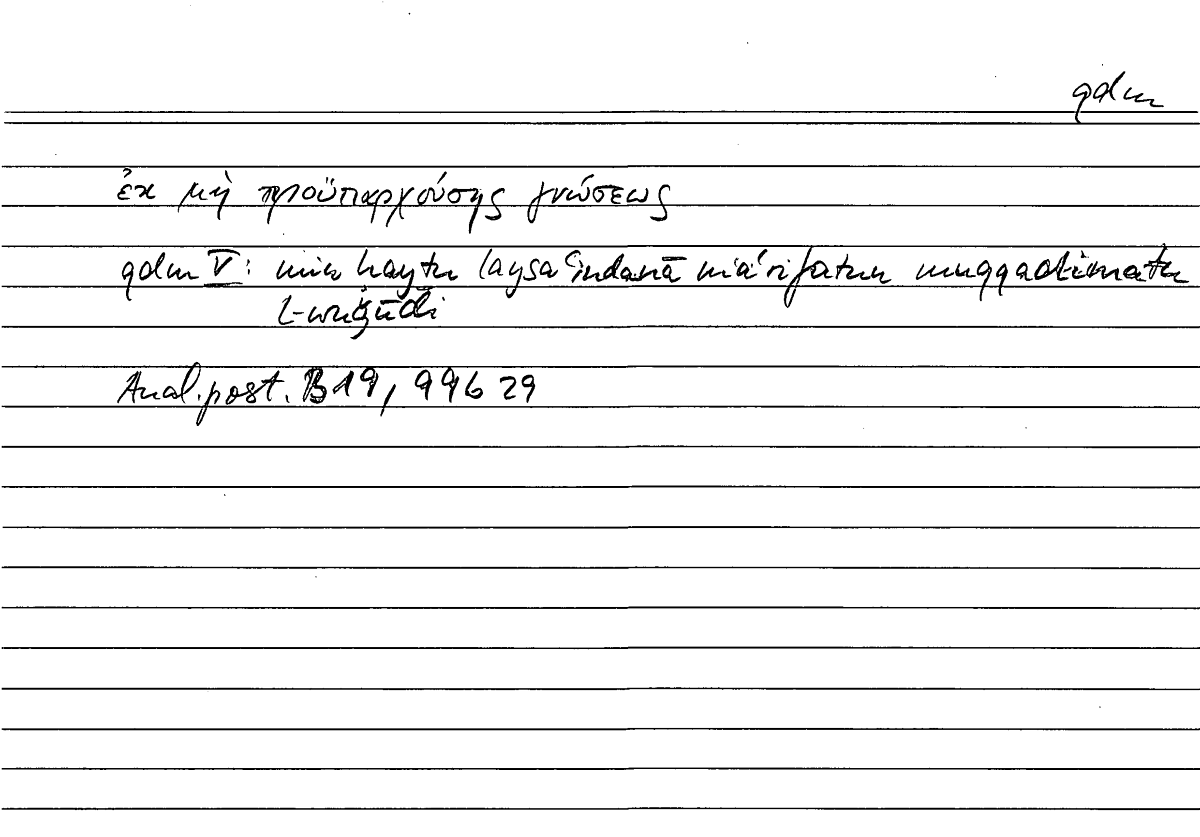 qdm
ἐκ μὴ προϋπαρχούσης γνώσεως
qdm V: min ḥayṯu laysa ʿindanā maʿrifatun muqqadimatu
l-wuǧūdi
Anal. post. B19, 99b 29